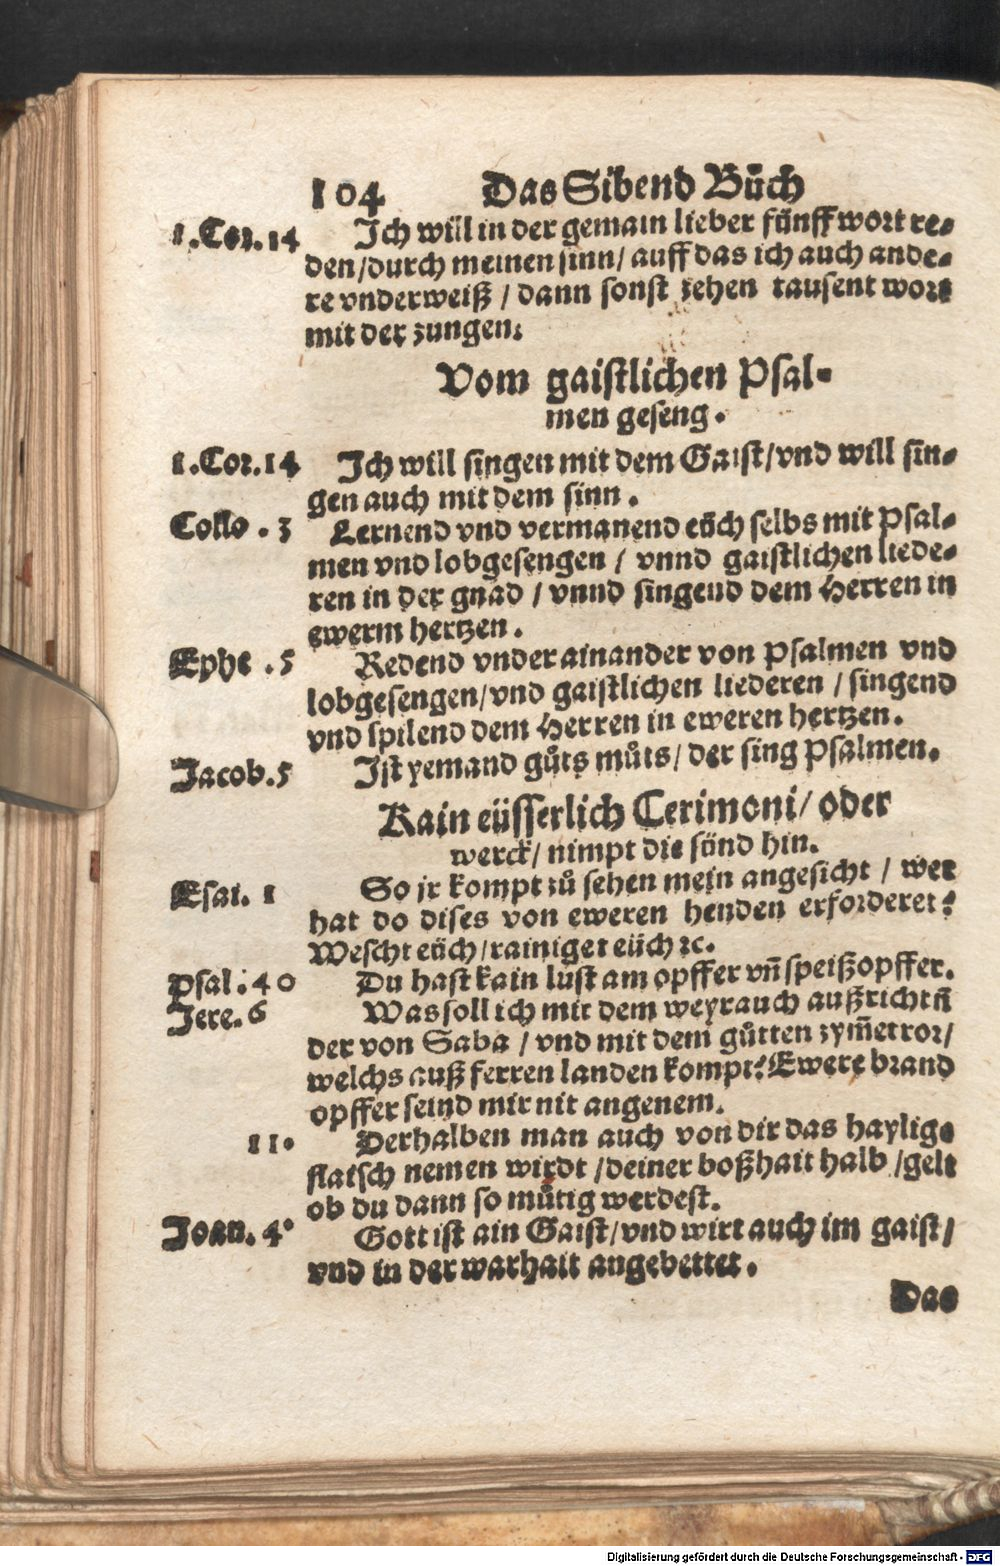 104 Das Sibend Bůch
1.Cor.14 Ich will in der gemain lieber fünff wort re-
den/durch meinen sinn/ auff das ich auch ande-
re vnderweiß / dann sonst zehen tausent wort
mit der zungen.
Vom gaistlichen Psal-
men geseng.
1.Cor.14 Ich will singen mit dem Gaist/vnd will sin-
gen auch mit dem sinn.
Collo.3 Lernend vnd vermanend eüch selbs mit Psal-
men vnd lobgesengen / vnnd gaistlichen liede-
ren in der gnad / vnnd singend dem Herren in
ewerm hertzen.
Ephe.5 Redend vnder ainander von Psalmen vnd
lobgesengen/vnd gaistlichen liederen / singend
vnd spilend dem Herren in eweren hertzen.
Jacob.5 Ist yemand gůts můts/ der sing Psalmen.
Kain eüsserlich Cerimoni/ oder
werck/ nimpt die sünd hin.
Esai. 1 So jr kompt zů sehen mein angesicht / wer
hat do dises von eweren henden erforderet?
Wescht eüch/rainiget eüch ꝛc.
Psal.40 Du hast kain lust am opffer vñ speißopffer.
Jere.6 Was soll ich mit dem weyrauch außrichtñ
der von Saba / vnd mit dem gůtten zym̃etror/
welchs auß ferren landen kompt? Ewere brand
opffer seind mir nit angenem.
11. Derhalben man auch von dir das haylige
flaisch nemen wirdt /deiner boßhait halb /gelt
ob du dann so můtig werdest.
Joan.4. Gott ist ain Gaist/vnd wirt auch im gaist/
vnd in der warhait angebettet.
Das
Digitalisierung gefördert durch die Deutsche Forschungsgemeinschaft - DFG